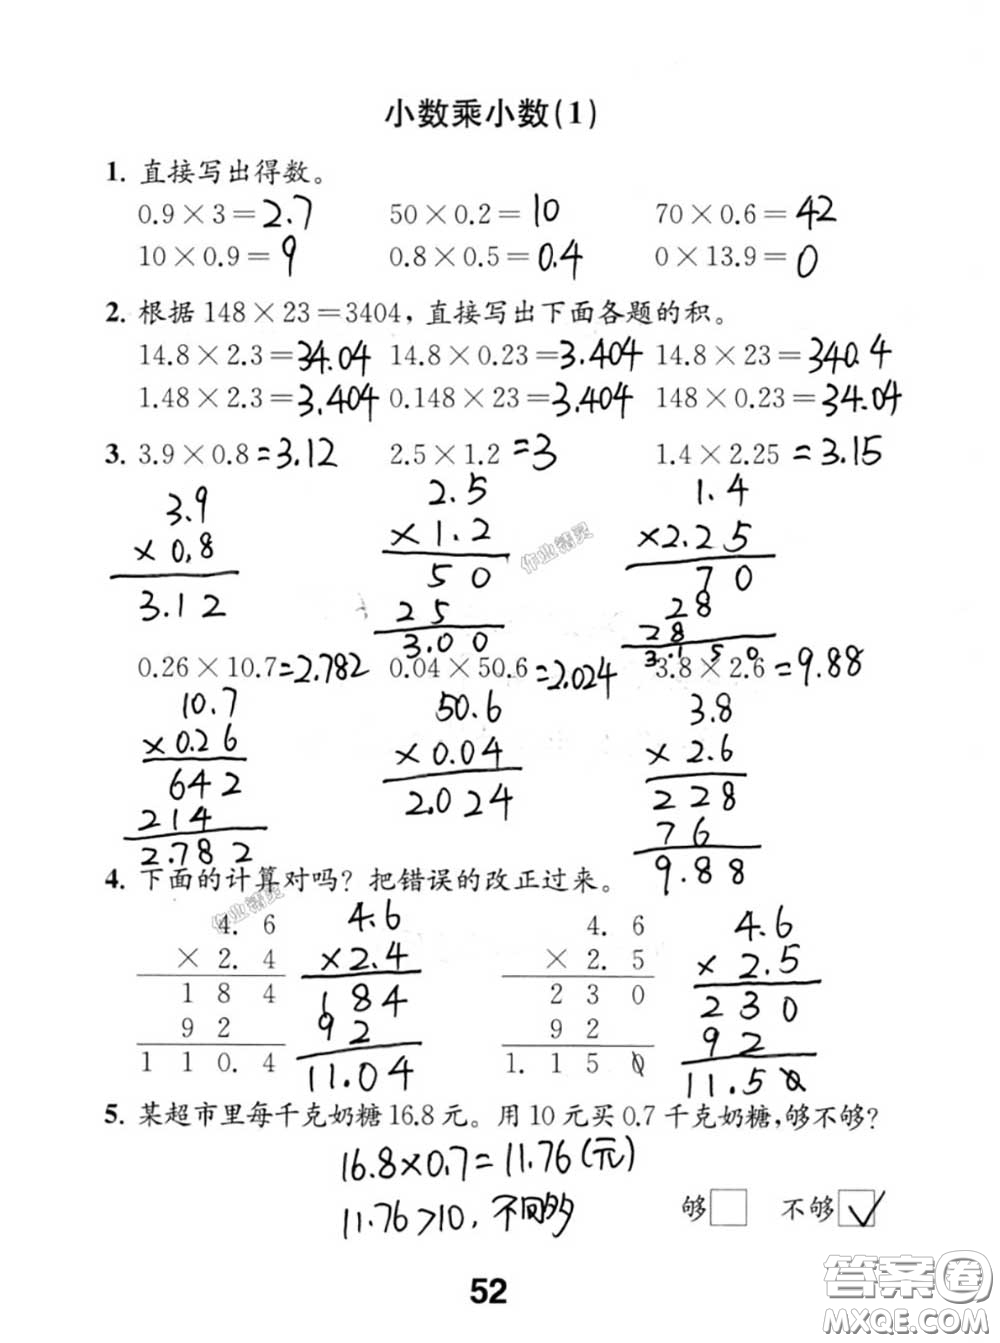 小数乘小数(1)
1. 直接写出得数。
0.9×3=2.7 50×0.2=10 70×0.6=42
10×0.9=9 0.8×0.5=0.4 0×13.9=0
2. 根据148×23=3404,直接写出下面各题的积。
14.8×2.3=34.04 14.8×0.23=3.404 14.8×23=340.4
1.48×2.3=3.404 0.148×23=3.404 148×0.23=34.04
3. 3.9×0.8=3.12 2.5×1.2=3 1.4×2.25=3.15
3.9 2.5 1.4
×0.8 ×1.2 ×2.25
3.12 50 70
25 28
3.00 28
3.150
0.26×10.7=2.782 0.04×50.6=2.024 3.8×2.6=9.88
10.7 50.6 3.8
×0.26 ×0.04 ×2.6
642 2.024 228
214 76
2.782 9.88
4. 下面的计算对吗?把错误的改正过来。
4.6 4.6 4.6 4.6
×2.4 ×2.4 ×2.5 ×2.5
184 184 230 230
92 92 92 92
110.4 11.04 1.150 11.50
5. 某超市里每千克奶糖16.8元。用10元买0.7千克奶糖,够不够?
16.8×0.7=11.76(元)
11.76>10,不够 够 不够 ✓
52
作业精灵
作业精灵
答案圈
MXQE.COM